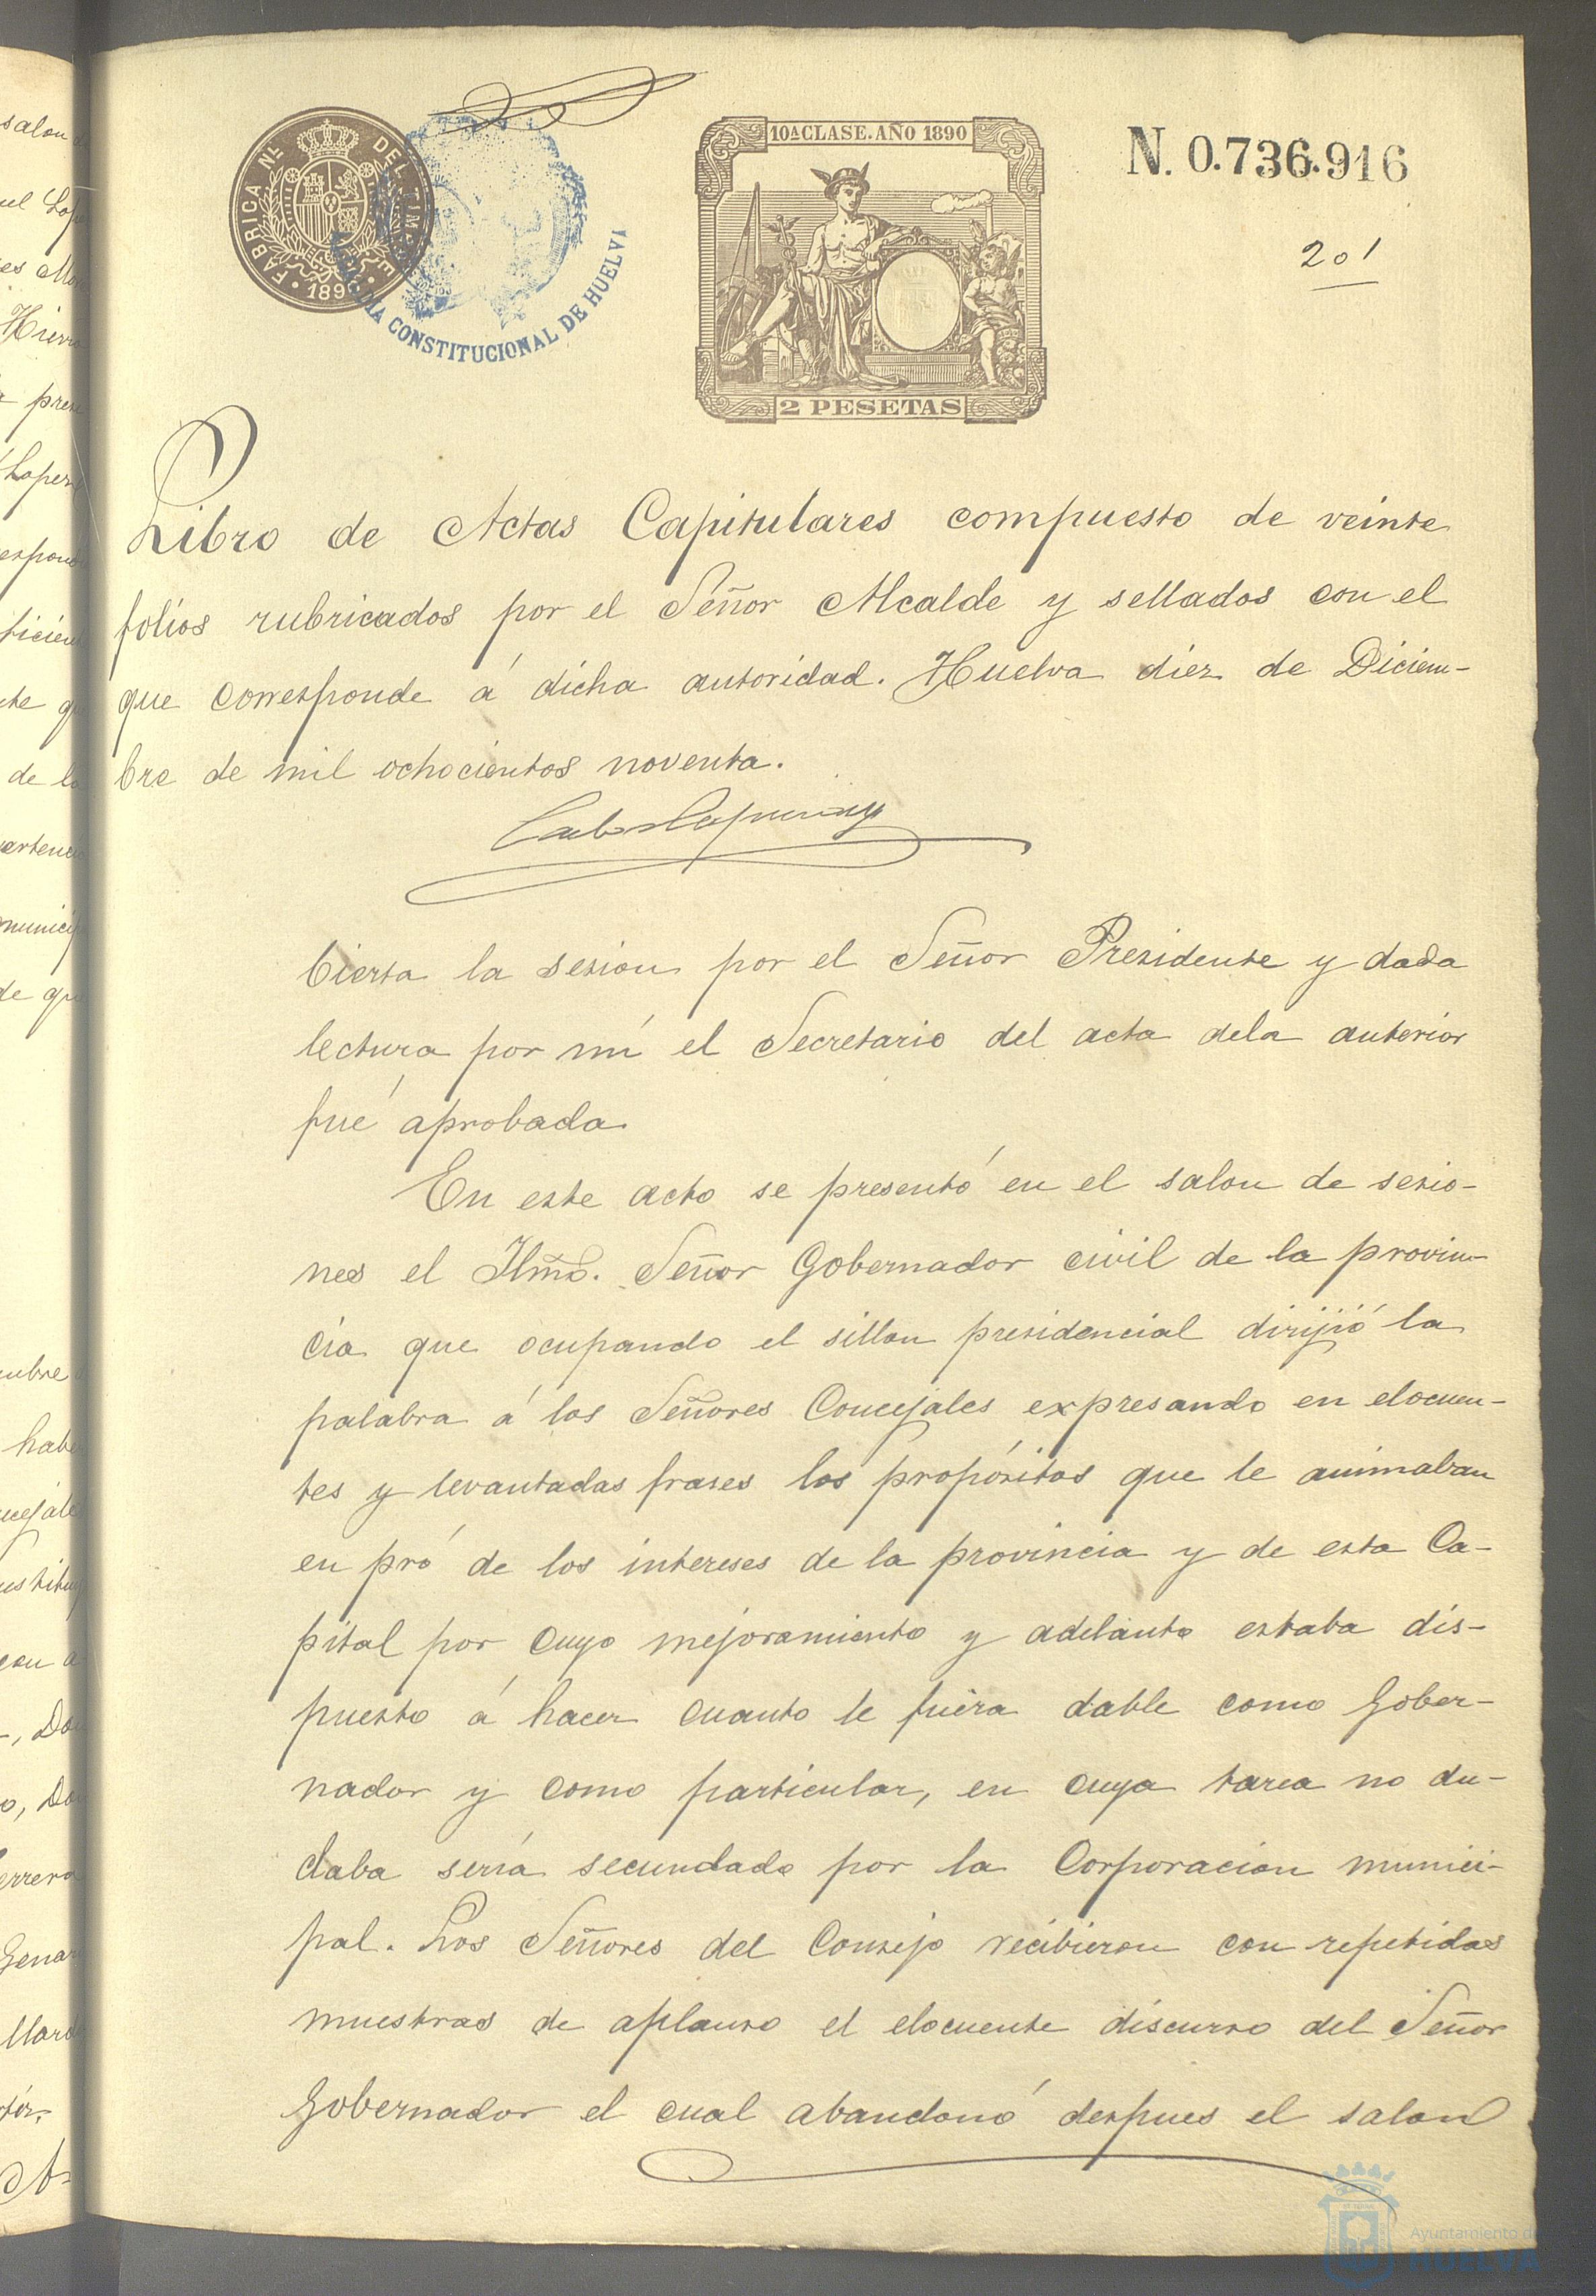 FABRICA NL DEL TIMBRE
189
CONSTITUCIONAL DE HUELVA
10ª CLASE. AÑO 1890
2 PESETAS
N. 0.736.916
201
Libro de Actas Capitulares compuesto de veinte
folios rubricados por el Señor Alcalde y sellados con el
que corresponde á dicha autoridad. Huelva diez de Diciem-
bre de mil ochocientos noventa.
bierta la sesion por el Señor Presidente y dada
lectura por mí el Secretario del acta dela anterior
fué aprobada.
En este acto se presentó en el salon de sesio-
nes el Iltmõ. Señor Gobernador civil de la provin-
cia que ocupando el sillon presidencial dirijió la
palabra á los Señores Concejales expresando en elocuen-
tes y levantadas frases los propósitos que le animaban
en pró de los intereses de la provincia y de esta Ca-
pital por cuyo mejoramiento y adelanto estaba dis-
puesto á hacer cuanto le fuera dable como Gober-
nador y como particular, en cuya tarea no du-
daba sería secundado por la Corporacion munici-
pal. Los Señores del Consejo recibieron con repetidas
muestras de aplauso el elocuente discurso del Señor
Gobernador el cual abandonó despues el salon
Ayuntamiento de
HUELVA